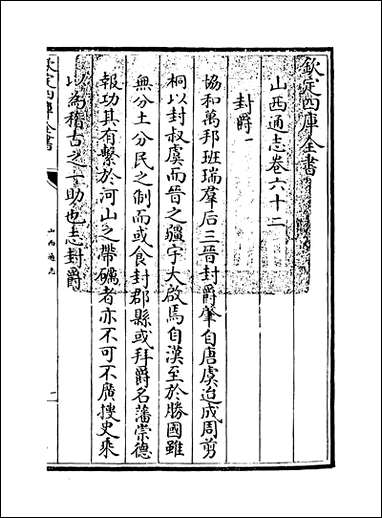 欽定四庫全書
山西通志卷六十二
封爵一
協和萬邦班瑞羣后三晉封爵肇自唐虞迨成周剪
桐以封叔虞而晉之疆宇大啟焉自漢至於勝國雖
無分土分民之制而或食封郡縣或拜爵名藩崇德
報功其有繫於河山之帶礪者亦不可不廣搜史乘
以為稽古之一助也志封爵
欽定四庫全書
山西通志